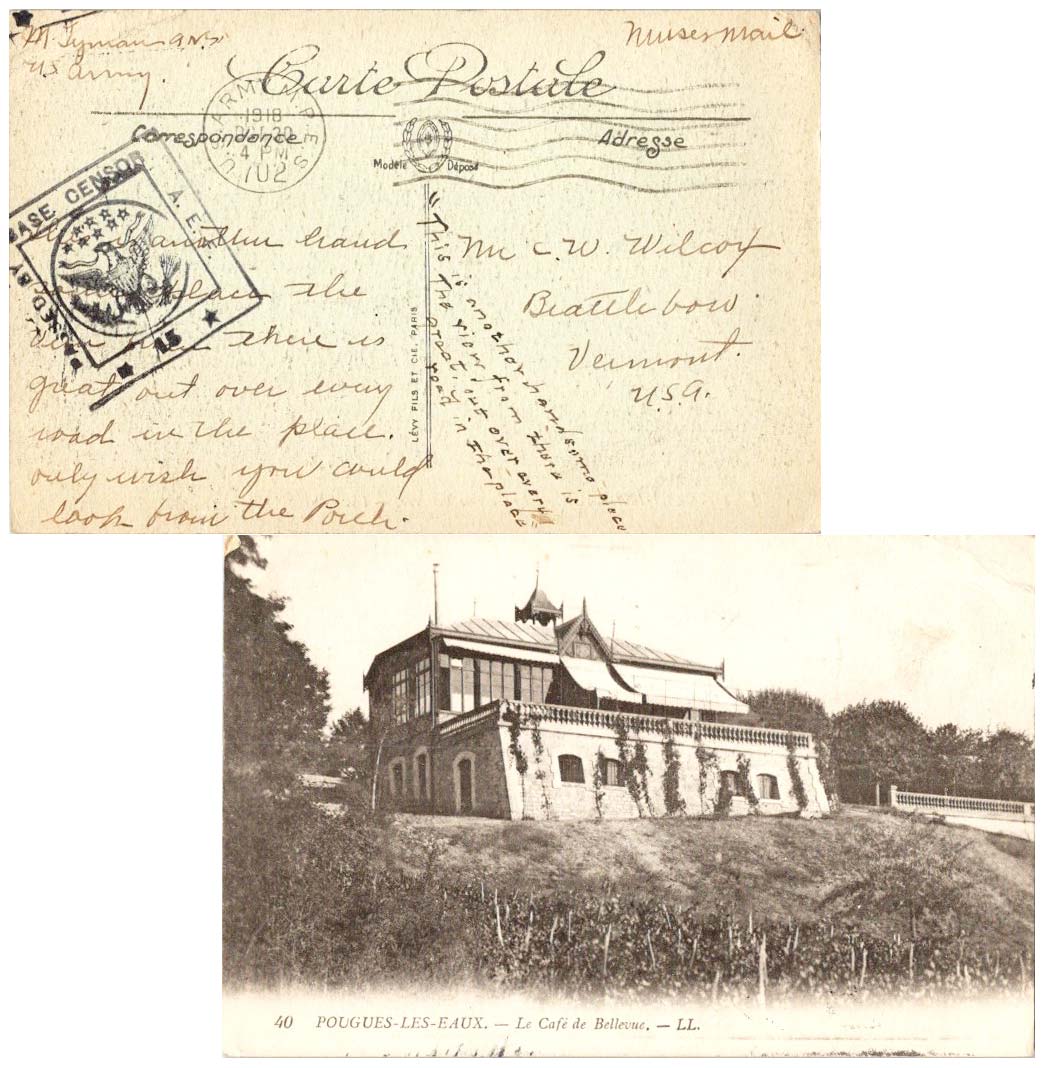 M Tyman anc
U.S Army.
Nurses Mail
Carte Postale
Correspondance
Adresse
Modèle Déposé
U.S. ARMY M.P.E.S.
1918
20
4 PM
702
PASSED BY BASE CENSOR
A. E. F.
15
is another hand
place the
view there is
great out over every
road in the place.
only wish you could
look from the Porch.
LÉVY FILS ET CIE, PARIS
"This is another handsome place
The view from there is
great; out over every
road in the place
Mr C. W. Wilcox
Brattlebow
Vermont.
U.S.A.
40 POUGUES-LES-EAUX. — Le Café de Bellevue. — LL.